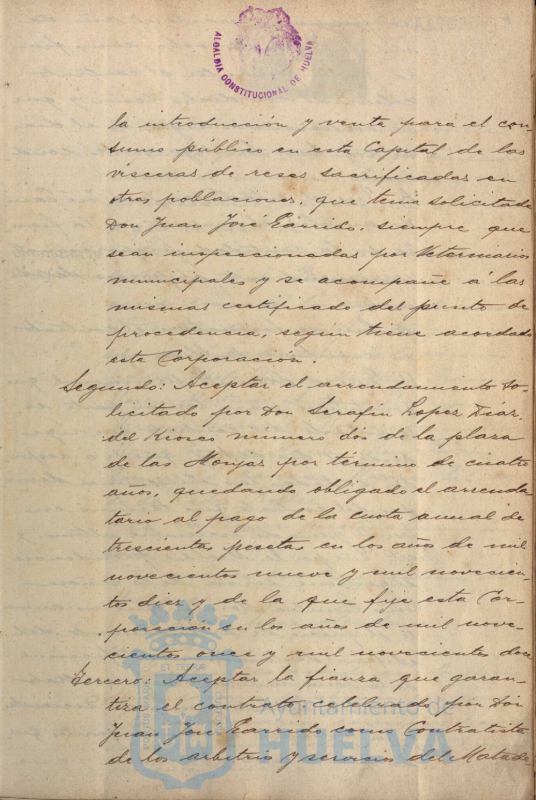 ALCALDIA CONSTITUCIONAL DE HUELVA
la introducción y venta para el con-
sumo público en esta Capital de las
vísceras de reses sacrificadas en
otras poblaciones, que tema solicitada
Don Juan José Garrido, siempre que
sean inspeccionadas por Veterinarios
municipales y se acompañe á las
mismas certificado del punto de
procedencia, según tiene acordado
esta Corporación.
Segundo: Aceptar el arrendamiento so-
licitado por Don Serafin Lopez Diaz
del Kiosco número dos de la plaza
de las Monjas por término de cuatro
años, quedando obligado el arrenda
tario al pago de la cuota anual de
trescientas pesetas en los años de mil
novecientos nueve y mil novecien-
tos diez y de la que fije esta Cor-
poración en los años de mil nove-
cientos once y mil novecientos doce
Tercero: Aceptar la fianza que garan-
tira el contrato celebrado por Don
Juan José Garrido como Contratista
de los arbitrios y servicios del Matade
Ayuntamiento de
HUELVA